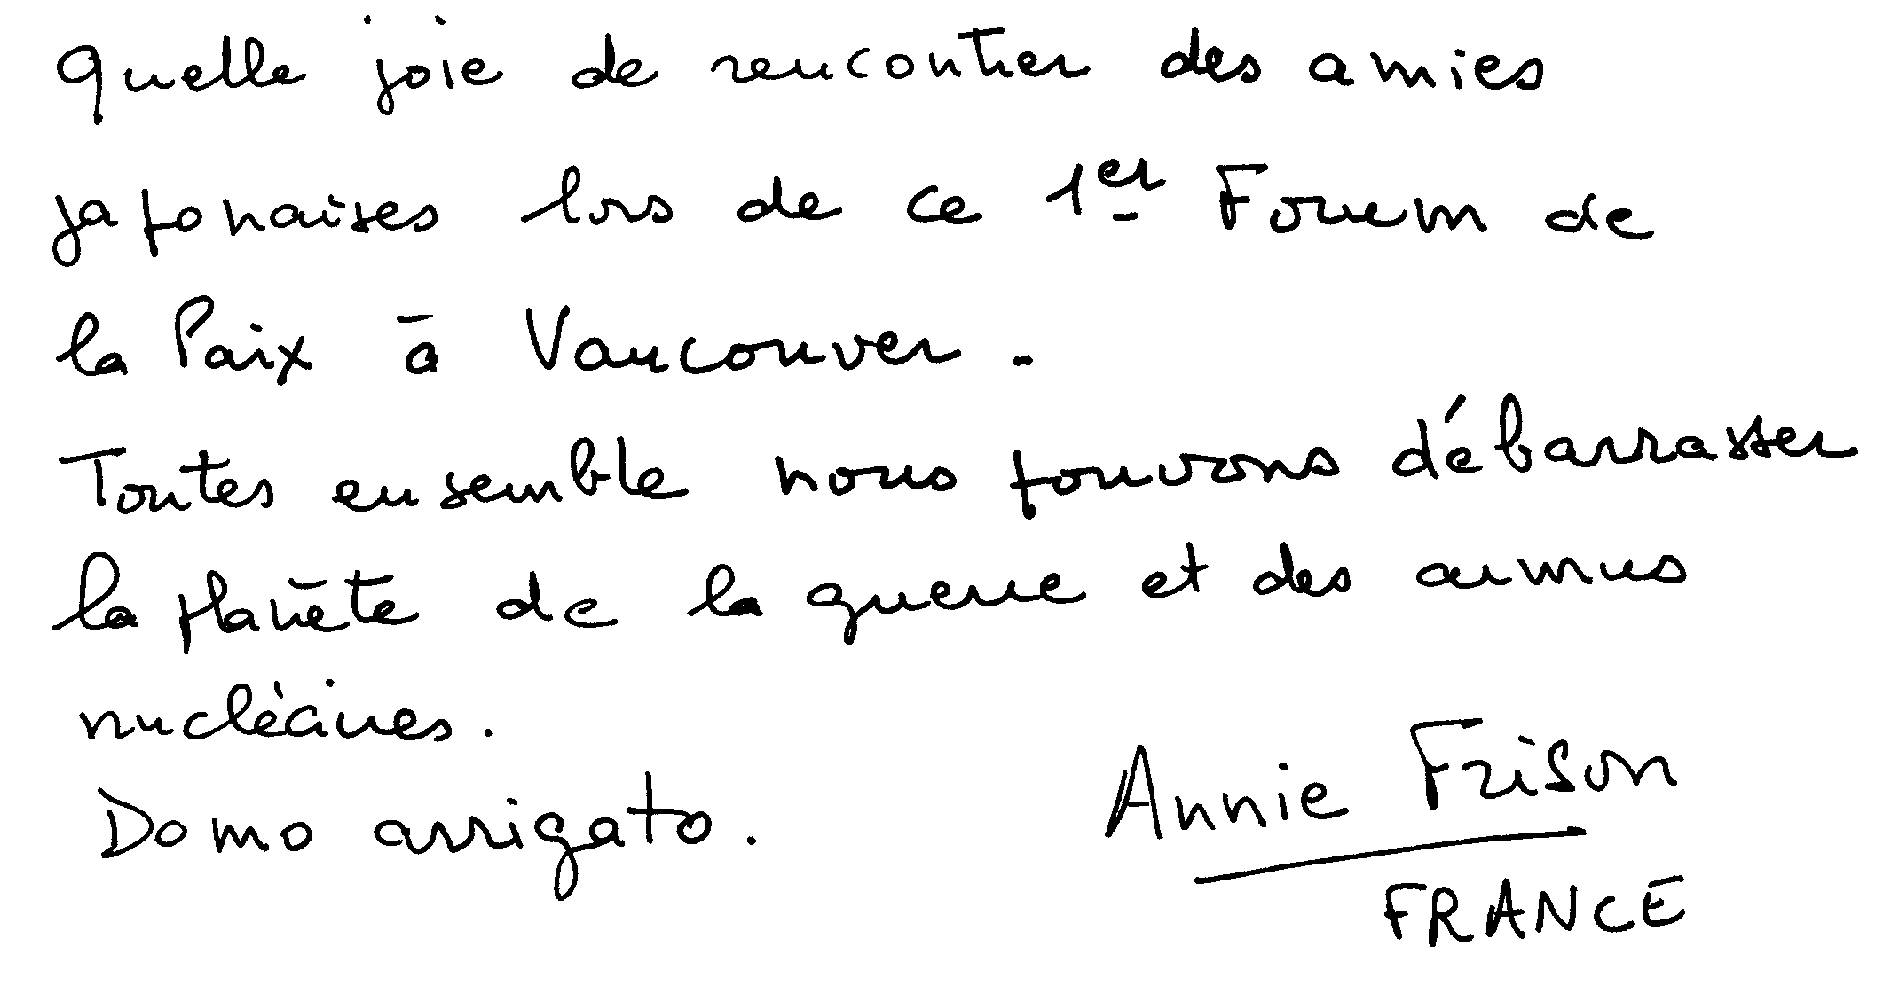 Quelle joie de rencontrer des amies
japonaises lors de ce 1er Forum de
la Paix à Vancouver.
Toutes ensemble nous pouvons débarrasser
la planète de la guerre et des armes
nucléaires.
Domo arrigato.
Annie Frison
FRANCE